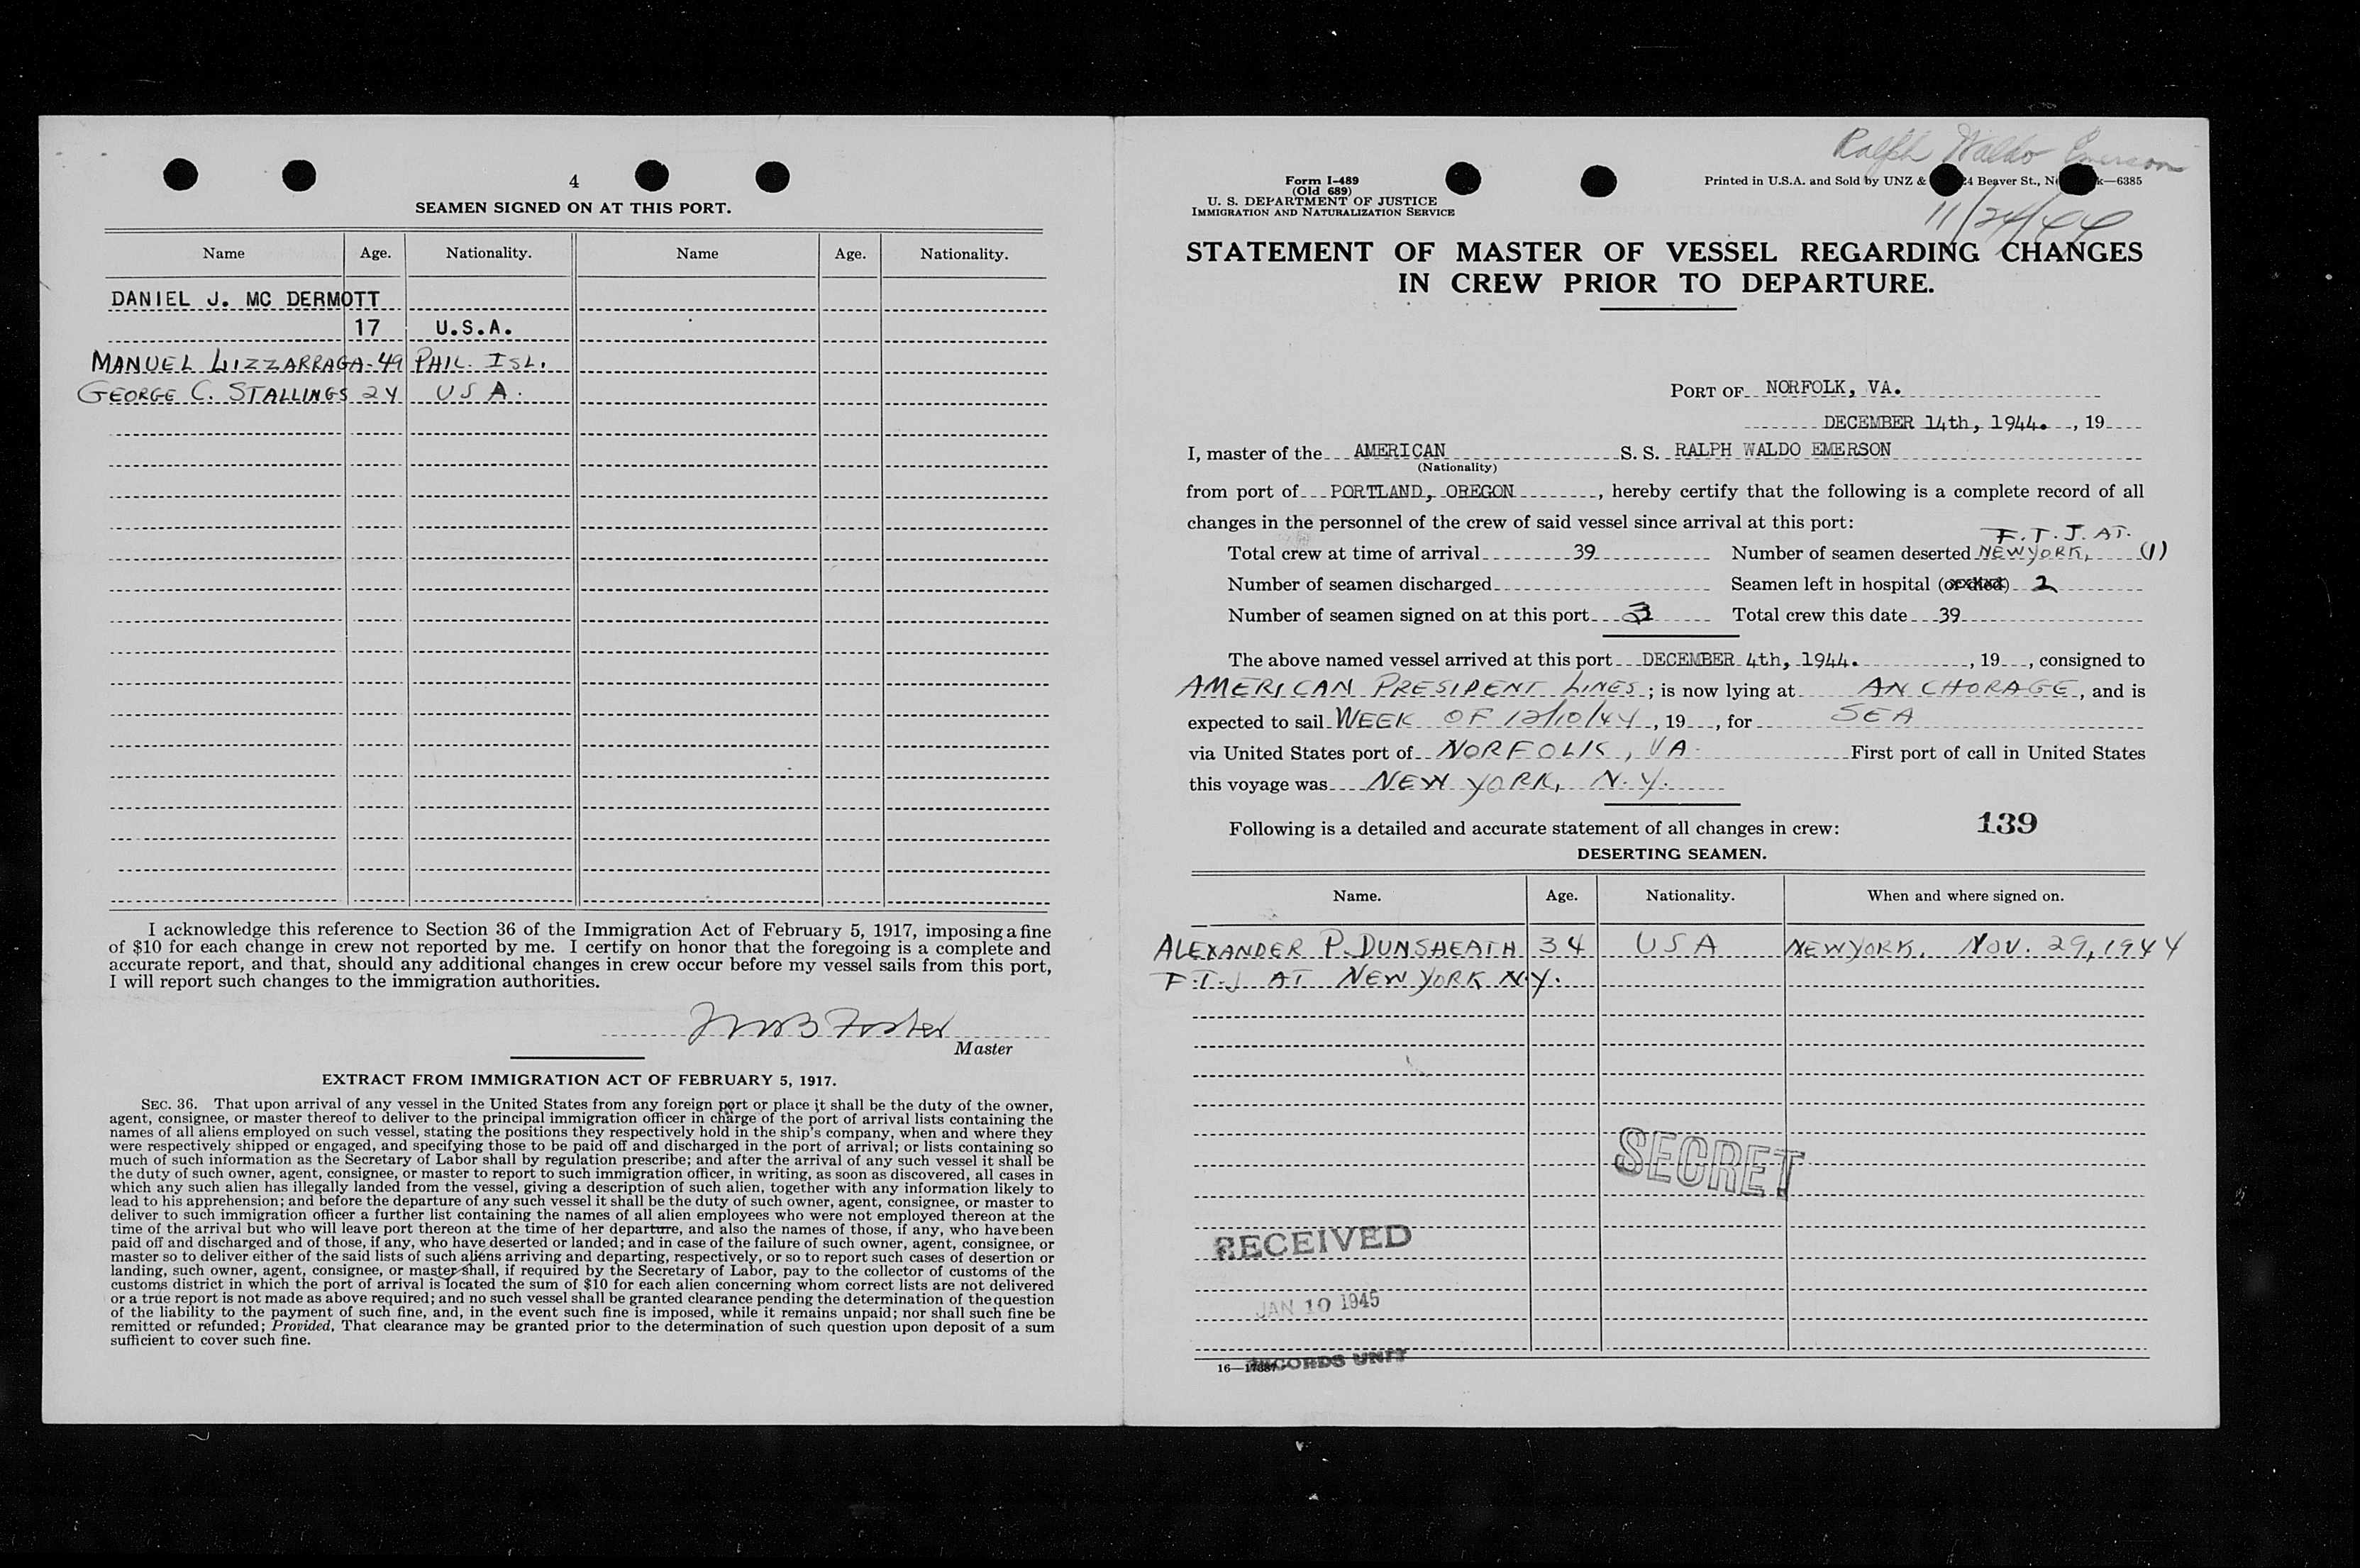 4
SEAMEN SIGNED ON AT THIS PORT.
Name Age. Nationality. Name Age. Nationality.
DANIEL J. MC DERMOTT
17 U.S.A.
MANUEL LIZZARRAGA-49 PHIL. ISL.
GEORGE C. STALLINGS 24 USA.
I acknowledge this reference to Section 36 of the Immigration Act of February 5, 1917, imposing a fine
of $10 for each change in crew not reported by me. I certify on honor that the foregoing is a complete and
accurate report, and that, should any additional changes in crew occur before my vessel sails from this port,
I will report such changes to the immigration authorities.
Foster
Master
EXTRACT FROM IMMIGRATION ACT OF FEBRUARY 5, 1917.
SEC. 36. That upon arrival of any vessel in the United States from any foreign port or place it shall be the duty of the owner,
agent, consignee, or master thereof to deliver to the principal immigration officer in charge of the port of arrival lists containing the
names of all aliens employed on such vessel, stating the positions they respectively hold in the ship's company, when and where they
were respectively shipped or engaged, and specifying those to be paid off and discharged in the port of arrival; or lists containing so
much of such information as the Secretary of Labor shall by regulation prescribe; and after the arrival of any such vessel it shall be
the duty of such owner, agent, consignee, or master to report to such immigration officer, in writing, as soon as discovered, all cases in
which any such alien has illegally landed from the vessel, giving a description of such alien, together with any information likely to
lead to his apprehension; and before the departure of any such vessel it shall be the duty of such owner, agent, consignee, or master to
deliver to such immigration officer a further list containing the names of all alien employees who were not employed thereon at the
time of the arrival but who will leave port thereon at the time of her departure, and also the names of those, if any, who have been
paid off and discharged and of those, if any, who have deserted or landed; and in case of the failure of such owner, agent, consignee, or
master so to deliver either of the said lists of such aliens arriving and departing, respectively, or so to report such cases of desertion or
landing, such owner, agent, consignee, or master shall, if required by the Secretary of Labor, pay to the collector of customs of the
customs district in which the port of arrival is located the sum of $10 for each alien concerning whom correct lists are not delivered
or a true report is not made as above required; and no such vessel shall be granted clearance pending the determination of the question
of the liability to the payment of such fine, and, in the event such fine is imposed, while it remains unpaid; nor shall such fine be
remitted or refunded; Provided, That clearance may be granted prior to the determination of such question upon deposit of a sum
sufficient to cover such fine.
Ralph Waldo Emerson
11/24/44
Form I-489
(Old 689)
U. S. DEPARTMENT OF JUSTICE
IMMIGRATION AND NATURALIZATION SERVICE
Printed in U.S.A. and Sold by UNZ & Beaver St., —6385
STATEMENT OF MASTER OF VESSEL REGARDING CHANGES
IN CREW PRIOR TO DEPARTURE.
PORT OF NORFOLK, VA.
DECEMBER 14th, 1944. , 19
I, master of the AMERICAN S. S. RALPH WALDO EMERSON
(Nationality)
from port of PORTLAND, OREGON , hereby certify that the following is a complete record of all
changes in the personnel of the crew of said vessel since arrival at this port:
F.T.J. AT.
Total crew at time of arrival 39 Number of seamen deserted NEWYORK, (1)
Number of seamen discharged Seamen left in hospital (or died) 2
Number of seamen signed on at this port 3 Total crew this date 39
The above named vessel arrived at this port DECEMBER 4th, 1944. , 19 , consigned to
AMERICAN PRESIDENT LINES ; is now lying at ANCHORAGE , and is
expected to sail WEEK OF 12/10/44 , 19 , for SEA
via United States port of NORFOLK, VA. First port of call in United States
this voyage was NEW YORK, N.Y.
Following is a detailed and accurate statement of all changes in crew: 139
DESERTING SEAMEN.
Name. Age. Nationality. When and where signed on.
ALEXANDER P. DUNSHEATH 34 USA NEWYORK. NOV. 29, 1944
F.T.J AT NEW YORK N.Y.
SECRET
RECEIVED
JAN 10 1945
RECORDS UNIT
16—17387